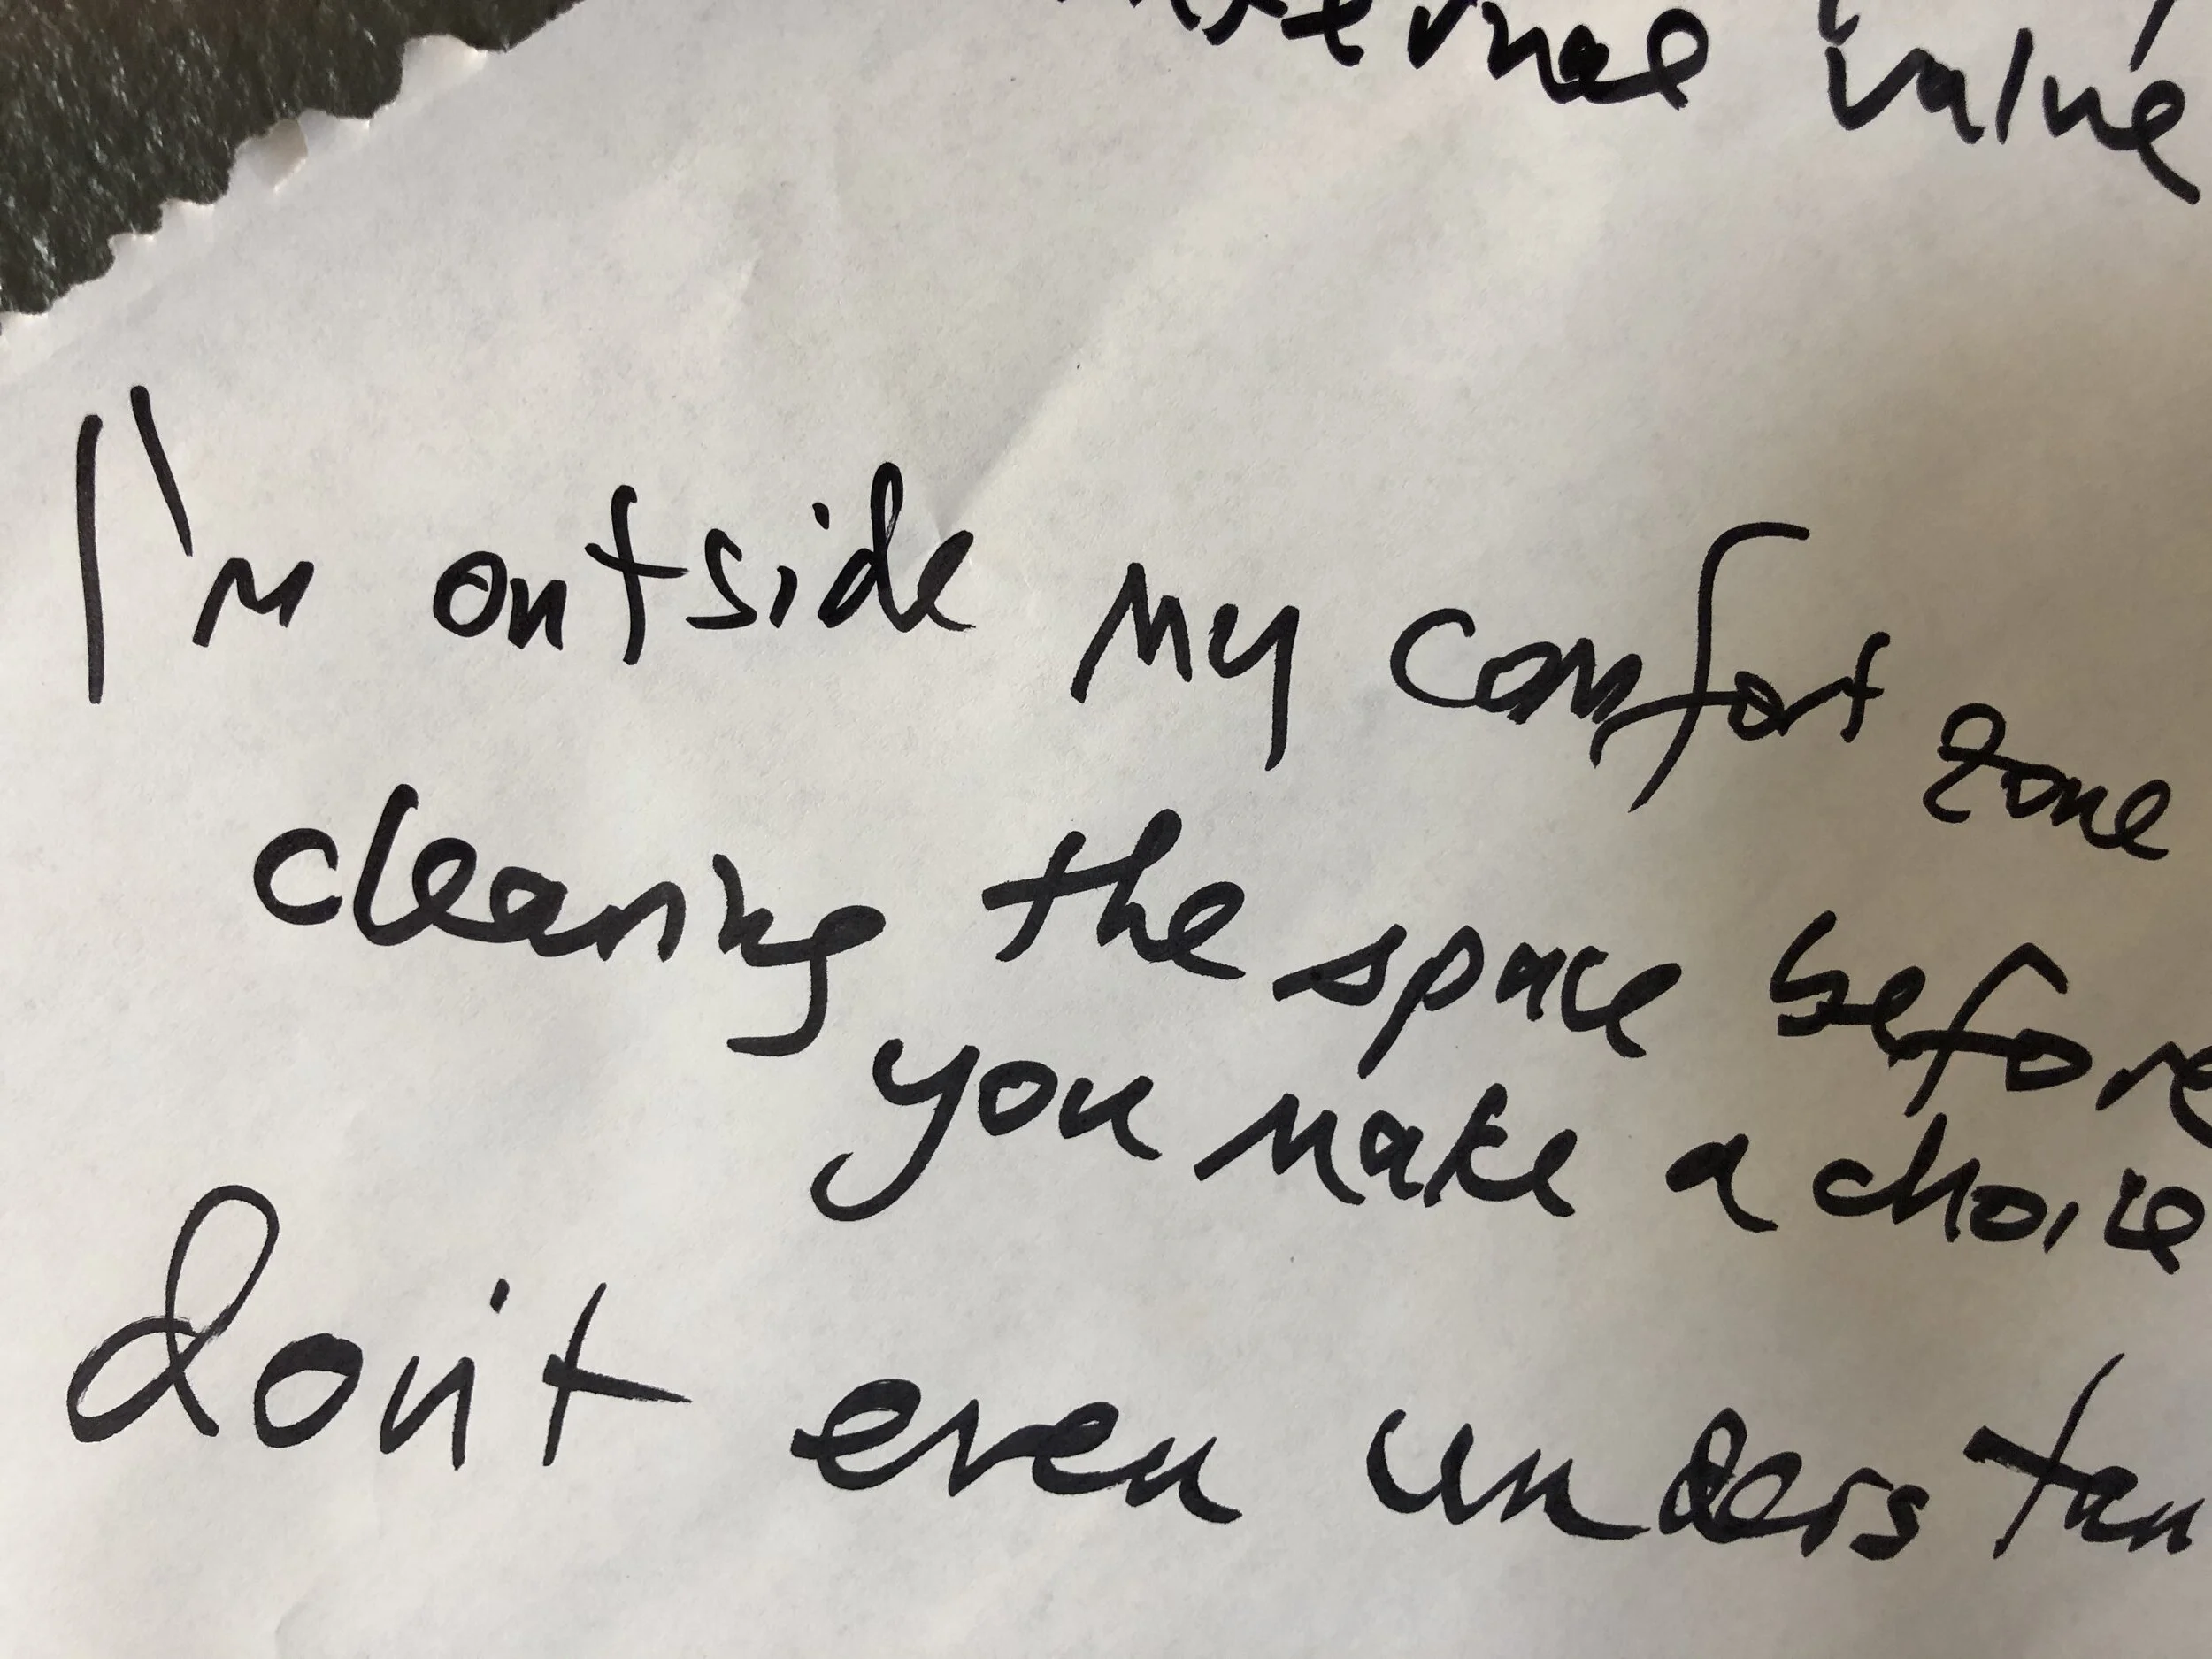 value
I'm outside my comfort zone
clearing the space before
you make a choice
don't even understan